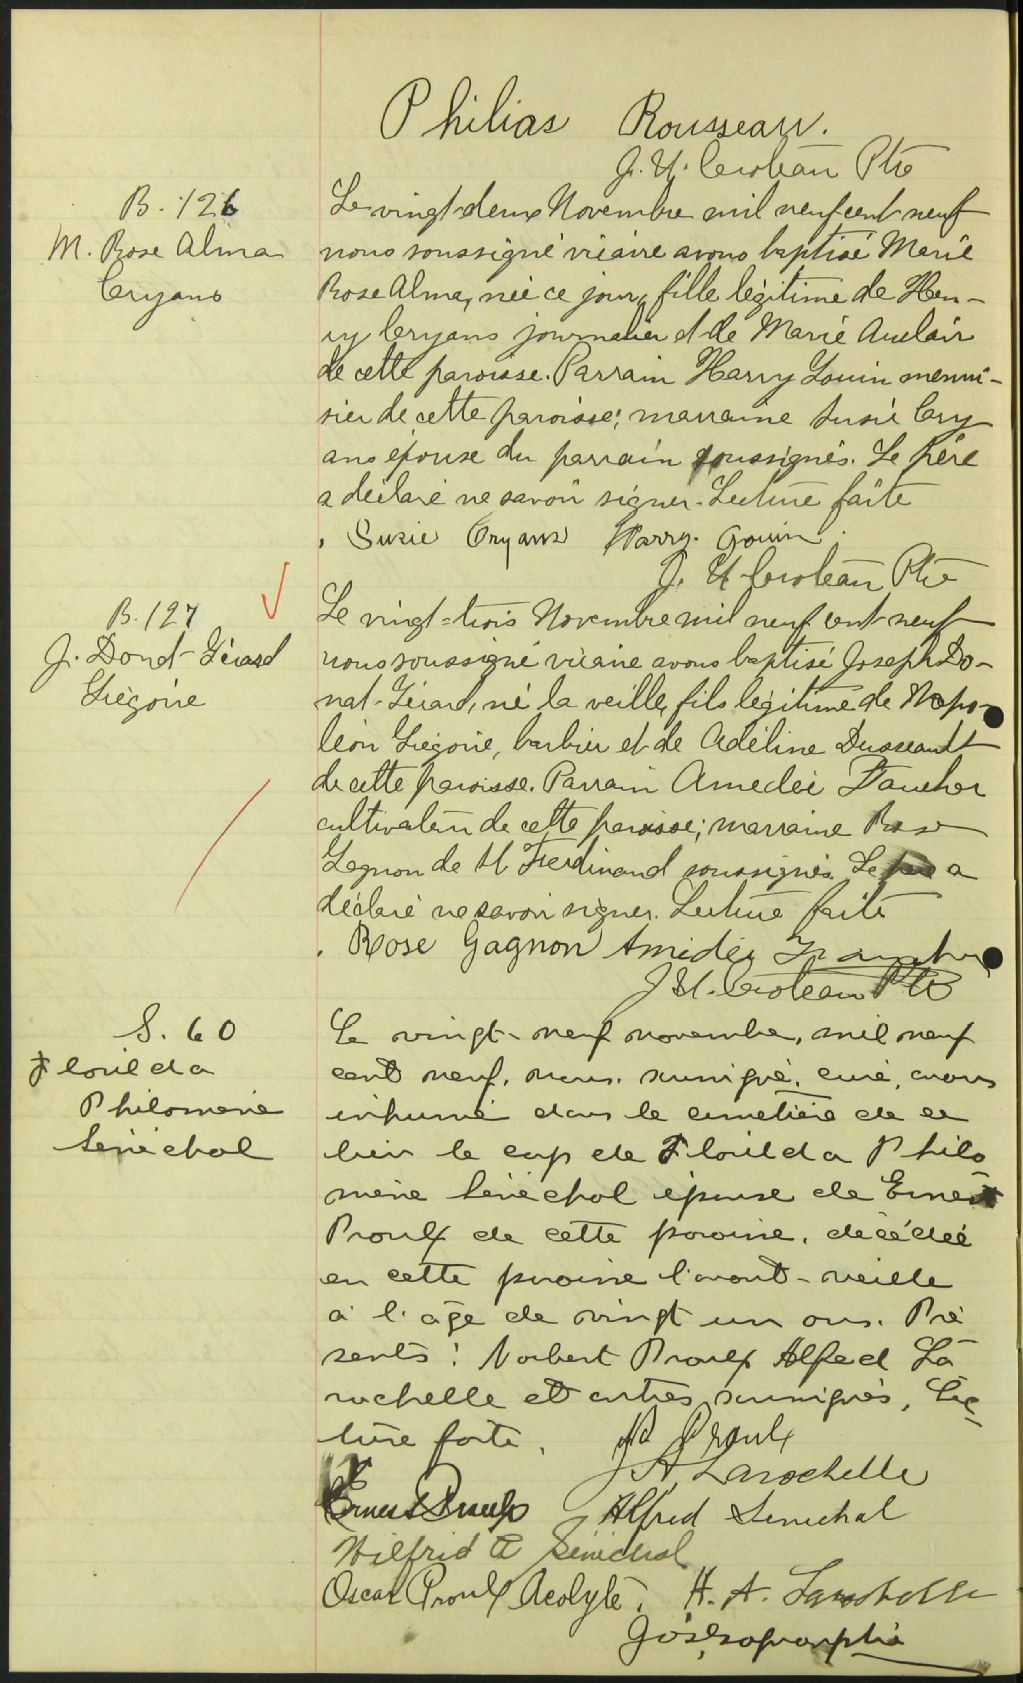 Philias Rousseau.
J. U. Croteau Ptre
B. 126
M. Rose Alma
Cryans
Le vingt-deux Novembre mil neuf cent neuf
nous soussigné vicaire avons baptisé Marie
Rose Alma, née ce jour, fille légitime de Hen-
ry Cryans journalier et de Marie Auclair
de cette paroisse. Parrain Harry Gouin menui-
sier de cette paroisse; marraine Susie Cry
ans épouse du parrain soussignés. Le père
a déclaré ne savoir signer. Lecture faite
Suzie Cryans Harry. Gouin.
J. U. Croteau Ptre
B. 127
J. Donat-Gérard
Grégoire
Le vingt-trois Novembre mil neuf cent neuf
nous soussigné vicaire avons baptisé Joseph Do-
nat-Gérard, né la veille, fils légitime de Napo-
léon Grégoire, barbier et de Adéline Dusseault
de cette paroisse. Parrain Amedée Faucher
cultivateur de cette paroisse; marraine Rose
Gagnon de St Ferdinand soussignés. Le père a
déclaré ne savoir signer. Lecture faite
Rose Gagnon Amédée Faucher
J. U. Croteau Ptre
S. 60
Florilda
Philomène
Sénéchal
Le vingt-neuf novembre, mil neuf
cent neuf, nous, soussigné, curé, avons
inhumé dans le cimetière de ce
lieu le corps de Florilda Philo
mène Sénéchal épouse de Ernest
Proulx de cette paroisse, décédée
en cette paroisse l'avant-veille
à l'âge de vingt un ans. Pré
sents: Norbert Proulx Alfred La
rochelle et autres soussignés, Lec-
ture faite. Nd Proulx
J A Larochelle
Ernest Proulx Alfred Senechal
Wilfrid A Sénéchal
Oscar Proulx Acolyte. H. A. Larochelle